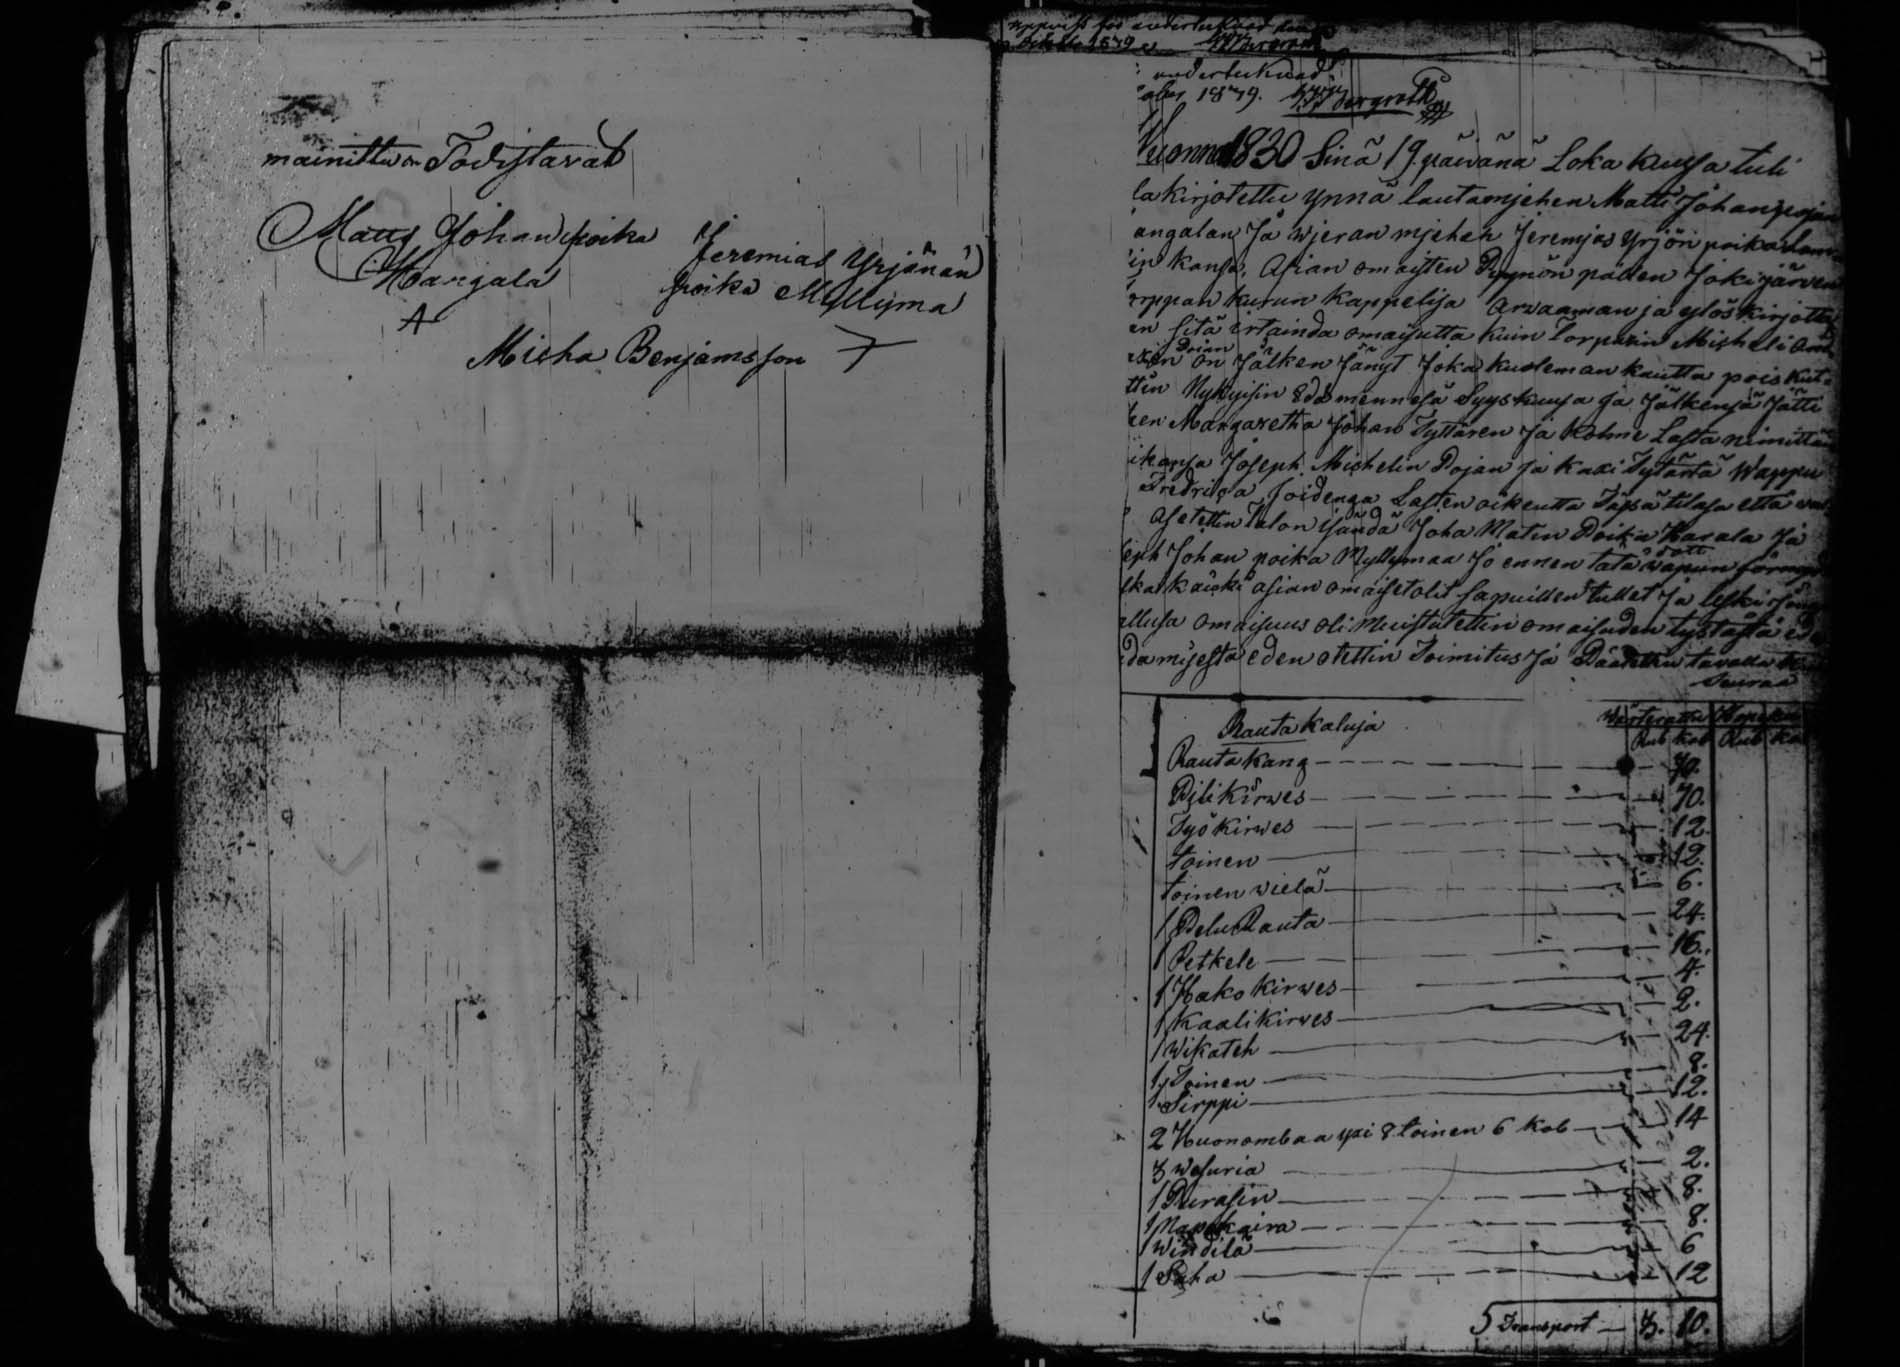 mainittu on Todistavat
Matts Johan poika
Hangala
Jeremias Yrjänän
poika Myllyma
Micha Benjamsson
undertecknad
ober 1879.
Vuonna 1830 Sinä 19 päivänä Loka kuusa tuli
la kirjotettu ynnä lautamjehen Matti Johan pojan
angalan Ja wjeran mjehen Jeremjas Yrjön poika
in kansa, Asian omaisten Pyynön pällen Jokijärven
orppan kurun Kappelija Arvaaman ja ylös kirjottu
en sitä irtainda omaisutta kuin Torparin Micheli
Pojan
on Jälken Jänyt Joka kuoleman kautta pois kut
ttin Nykyisin 8 dä mennesä Syyskuusa ja Jälkensä Jätti
ken Margaretha Johan Tyttären Ja Kolme Lasta nimittäin
ikansa Joseph Michelin Pojan ja kaxi Tytärtä Wappu
Fredrica Joidenga Lasten oikeutta Täsä tilasa että
Asetettin Talon isändä Joha Matin Poika Harala Ja
eph Johan poika Myllymaa Jo ennen tätä
ska kaicki asian omaiset olit sapuillen tullet Ja leski
llusa omaisuus oli Muistutettin omaisuden tystästä
da misesta eden otettin Toimitus Ja Päätettin tavalla
Seuraa
Rauta kaluja Wärterattu
Rub kob Rub ko
Rauta kang 70.
Pili kirwes 70.
Työ kirwes 12.
toinen 12.
toinen wielä 6.
1 Pelu Rauta 24.
1 Petkele 16.
1 Hako kirwes 4.
1 Kaali kirves 2.
1 Wikateh 24.
1 Toinen 8.
1 Sirppi 12.
2 Huonombaa yxi 8 toinen 6 kob 14
3 Wesuria 2.
1 Purasin 8.
1 Napakaira 8.
1 Windilä 6
1 Saha 12
5 Transport 3. 10.